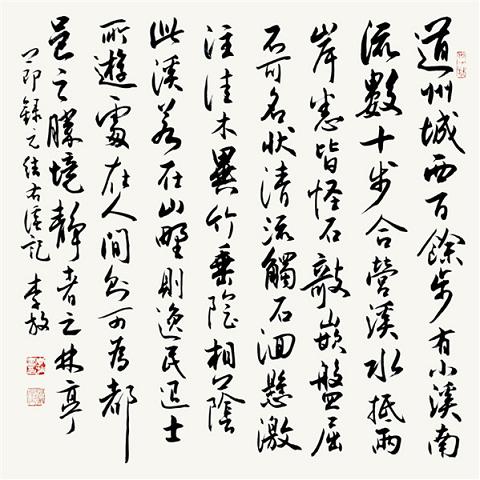 道州城西百餘步有小溪南
流數十步合營溪水抵兩
岸悉皆怪石欹嵌盤屈
不可名狀清流觸石洄懸激
注佳木異竹垂陰相蔭
此溪若在山野則逸民退士
所遊處在人間則可為都
邑之勝境靜者之林亭
節錄元結右溪記 李放